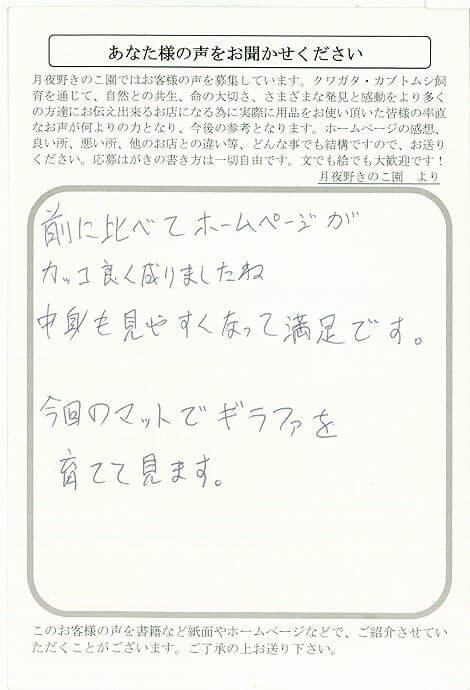 あなた様の声をお聞かせください
月夜野きのこ園ではお客様の声を募集しています。クワガタ・カブトムシ飼
育を通じて、自然との共生、命の大切さ、さまざまな発見と感動をより多く
の方達にお伝え出来るお店になる為に実際に用品をお使い頂いた皆様の率直
なお声が何よりの力となり、今後の参考となります。ホームページの感想、
良い所、悪い所、他のお店との違い等、どんな事でも結構ですので、お送り
ください。応募はがきの書き方は一切自由です。文でも絵でも大歓迎です！
月夜野きのこ園　より
前に比べてホームページが
カッコ良く成りましたね
中身も見やすくなって満足です。
今回のマットでギラファを
育てて見ます。
このお客様の声を書籍など紙面やホームページなどで、ご紹介させてい
ただくことがございます。ご了承の上お送り下さい。